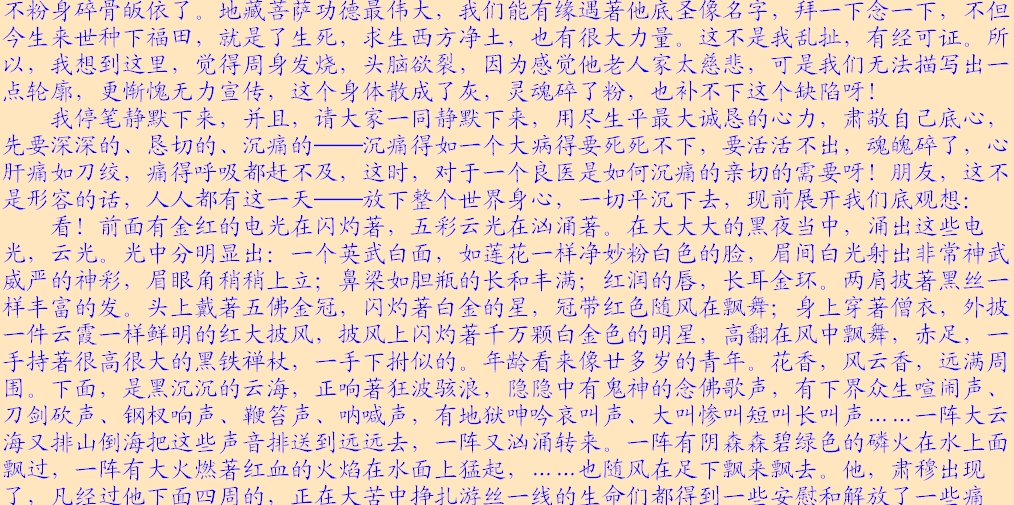 不粉身碎骨皈依了。地藏菩萨功德最伟大，我们能有缘遇著他底圣像名字，拜一下念一下，不但
今生来世种下福田，就是了生死，求生西方净土，也有很大力量。这不是我乱扯，有经可证。所
以，我想到这里，觉得周身发烧，头脑欲裂，因为感觉他老人家太慈悲，可是我们无法描写出一
点轮廓，更惭愧无力宣传，这个身体散成了灰，灵魂碎了粉，也补不下这个缺陷呀！
我停笔静默下来，并且，请大家一同静默下来，用尽生平最大诚恳的心力，肃敬自己底心，
先要深深的、恳切的、沉痛的——沉痛得如一个大病得要死死不下，要活活不出，魂魄碎了，心
肝痛如刀绞，痛得呼吸都赶不及，这时，对于一个良医是如何沉痛的亲切的需要呀！朋友，这不
是形容的话，人人都有这一天——放下整个世界身心，一切平沉下去，现前展开我们底观想：
看！前面有金红的电光在闪灼著，五彩云光在汹涌著。在大大大的黑夜当中，涌出这些电
光，云光。光中分明显出：一个英武白面，如莲花一样净妙粉白色的脸，眉间白光射出非常神武
威严的神彩，眉眼角稍稍上立；鼻梁如胆瓶的长和丰满；红润的唇，长耳金环。两肩披著黑丝一
样丰富的发。头上戴著五佛金冠，闪灼著白金的星，冠带红色随风在飘舞；身上穿著僧衣，外披
一件云霞一样鲜明的红大披风，披风上闪灼著千万颗白金色的明星，高翻在风中飘舞，赤足，一
手持著很高很大的黑铁禅杖，一手下拊似的。年龄看来像廿多岁的青年。花香，风云香，远满周
围。下面，是黑沉沉的云海，正响著狂波骇浪，隐隐中有鬼神的念佛歌声，有下界众生喧闹声、
刀剑砍声、钢杈响声、鞭笞声、呐喊声，有地狱呻吟哀叫声、大叫惨叫短叫长叫声……一阵大云
海又排山倒海把这些声音排送到远远去，一阵又汹涌转来。一阵有阴森森碧绿色的磷火在水上面
飘过，一阵有大火燃著红血的火焰在水面上猛起，……也随风在足下飘来飘去。他，肃穆出现
了，凡经过他下面四周的，正在大苦中挣扎游丝一线的生命们都得到一些安慰和解放了一些痛